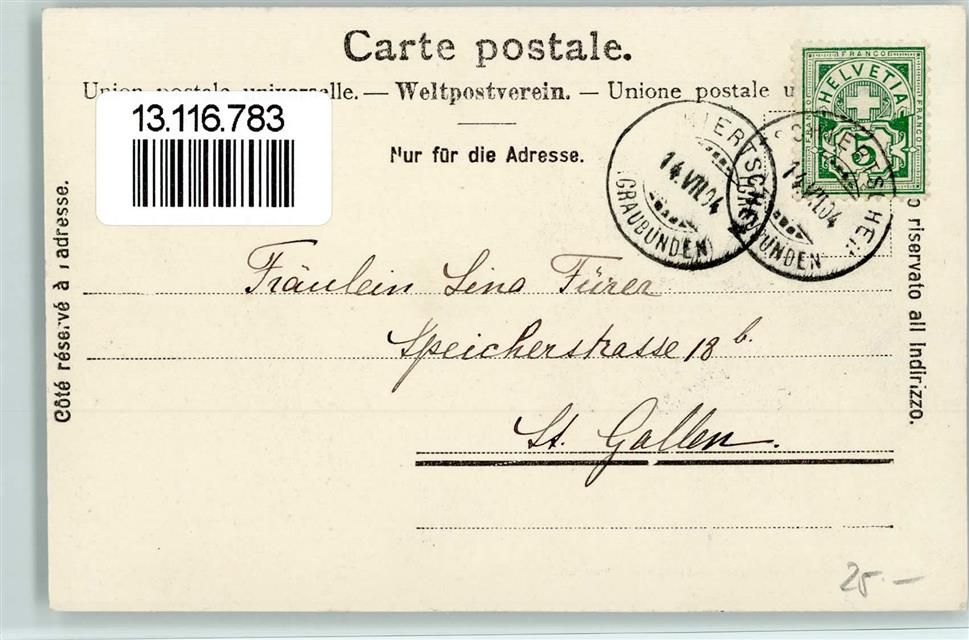 Carte postale.
Union postale universelle. — Weltpostverein. — Unione postale u
13.116.783
Nur für die Adresse.
FRANCO
HELVETIA
FRANCO
FRANCO
5
14.VII.04
(GRAUBÜNDEN)
14.VII.04
Côté réservé à l'adresse.
o riservato all Indirizzo.
Fräulein Lina Fürer
Speicherstrasse 18 b.
St. Gallen.
25.—